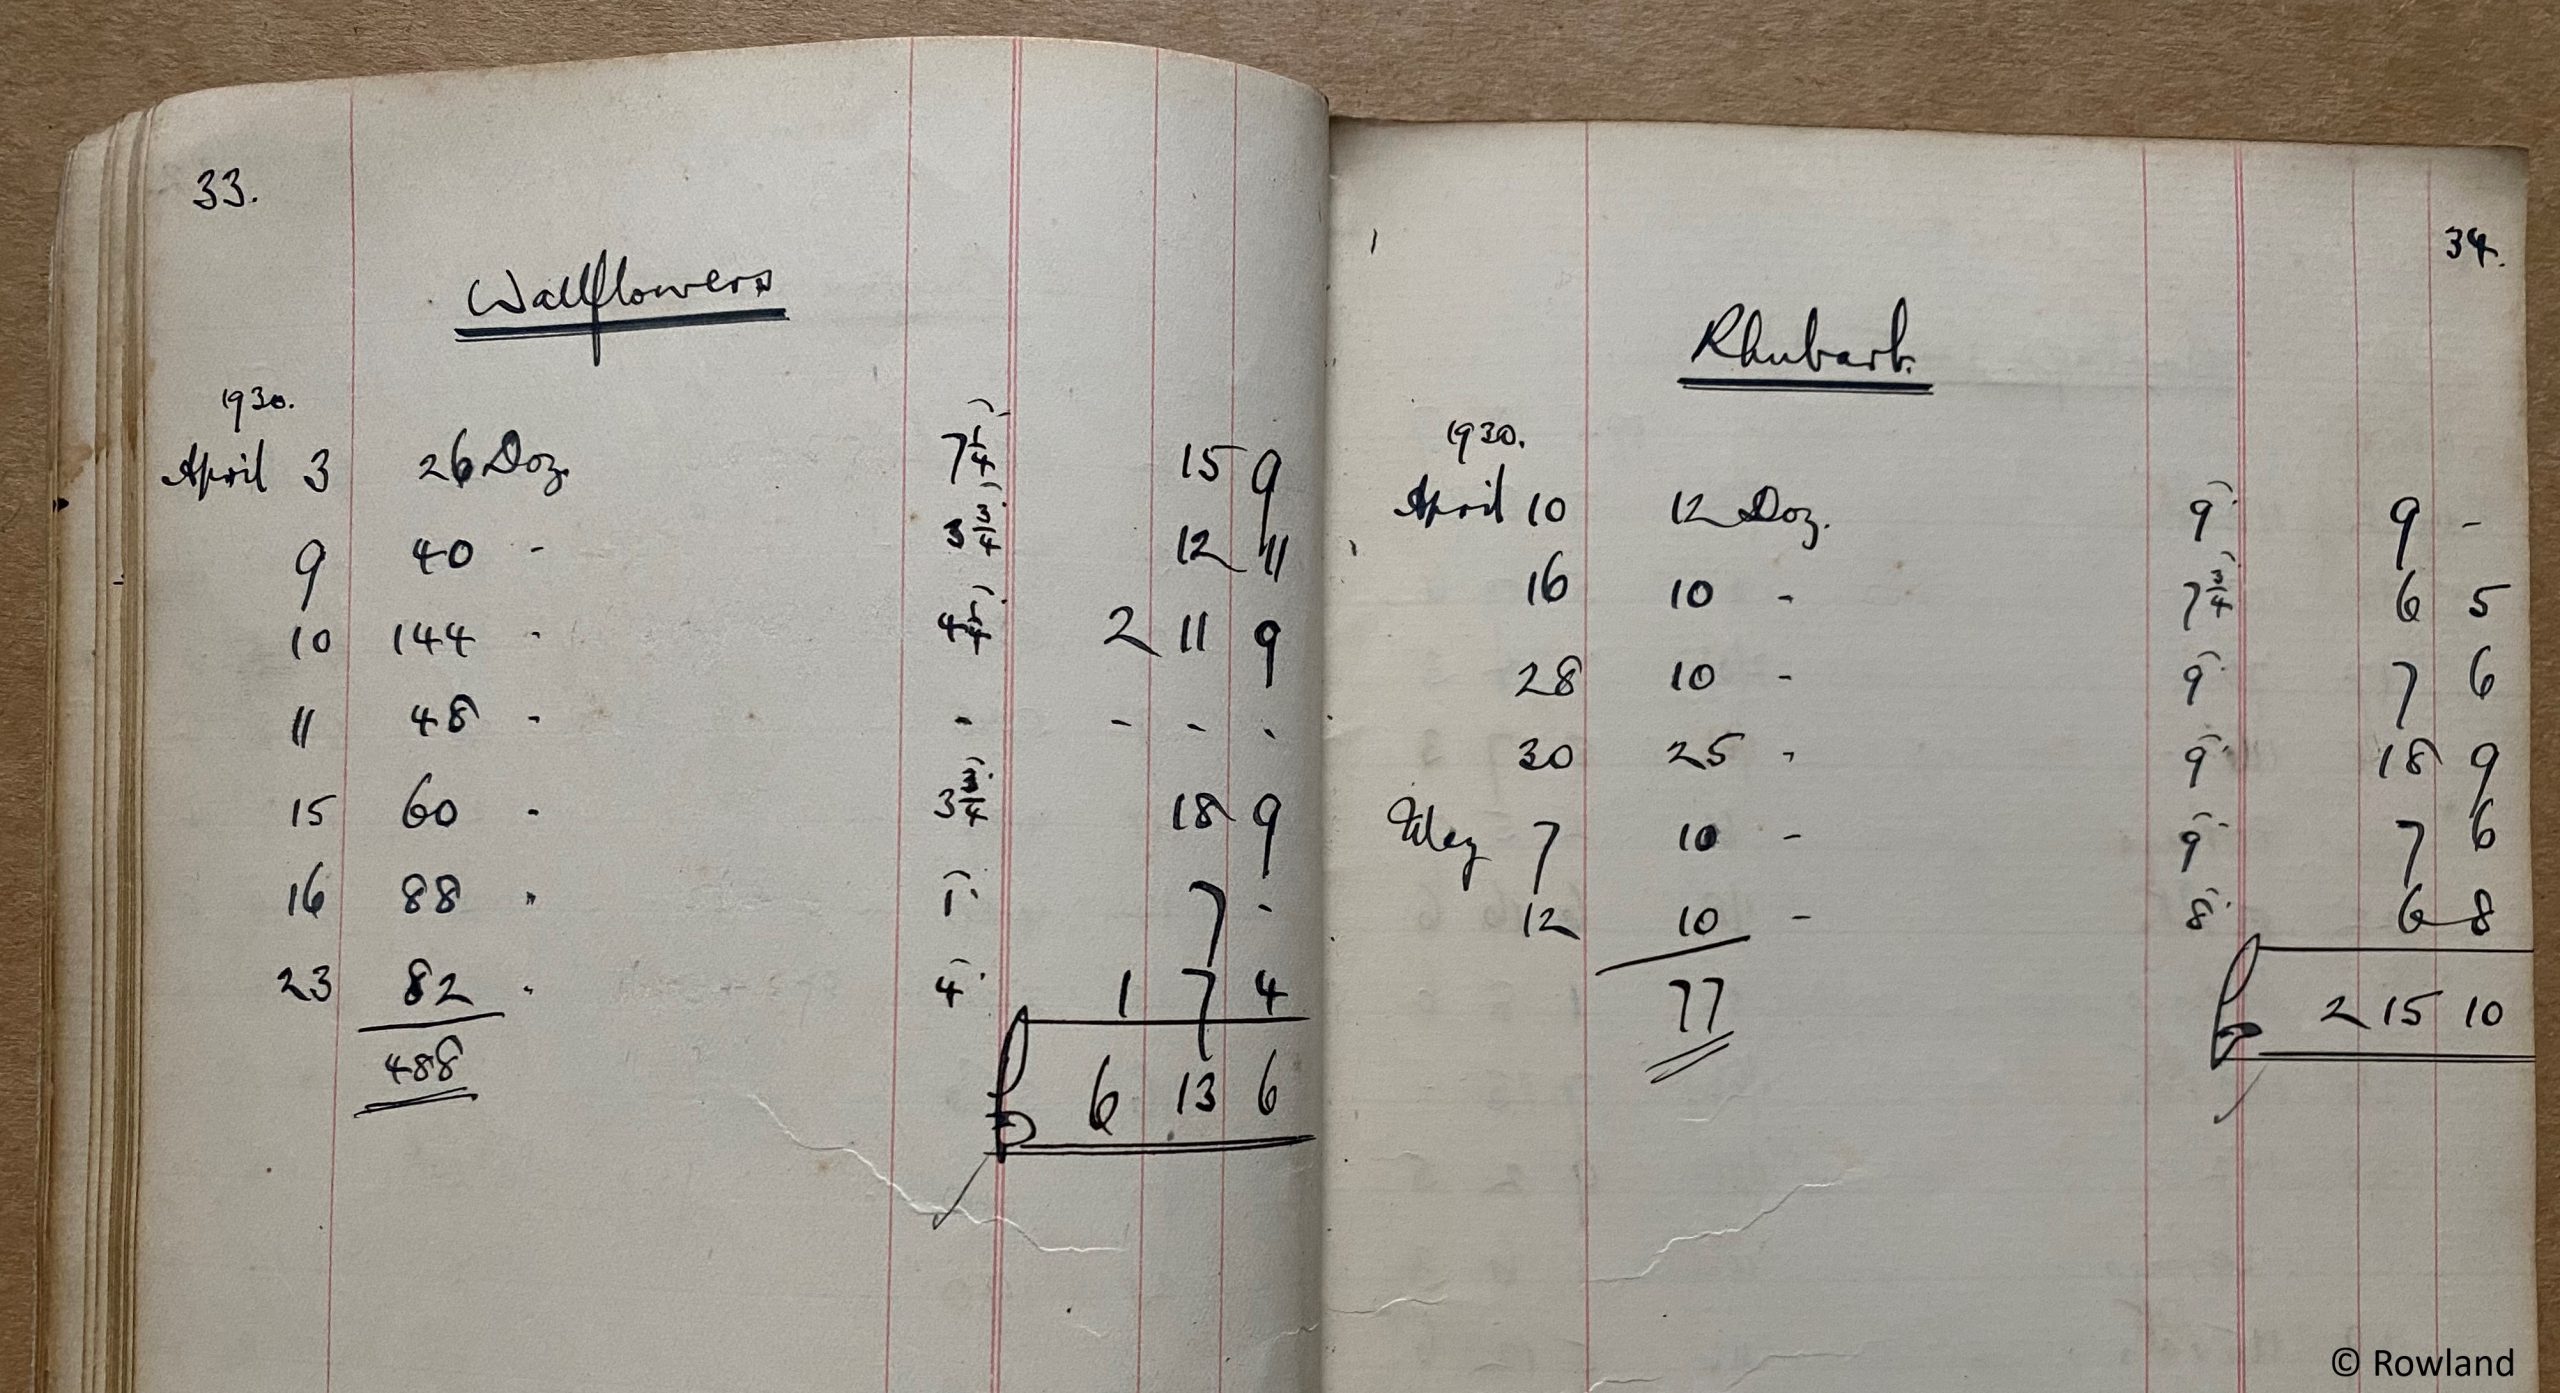 33.
Wallflowers
1930.
April 3 26 Doz. 7 1/4 15 9
9 40 - 3 3/4 12 11
10 144 - 4 1/4 2 11 9
11 48 - - - - -
15 60 - 3 3/4 18 9
16 88 " 1 7 -
23 82 - 4 1 7 4
488 6 13 6
34.
Rhubarb.
1930.
April 10 12 Doz. 9 9 -
16 10 - 7 3/4 6 5
28 10 - 9 7 6
30 25 - 9 18 9
May 7 10 - 9 7 6
12 10 - 8 6 8
77 2 15 10
© Rowland